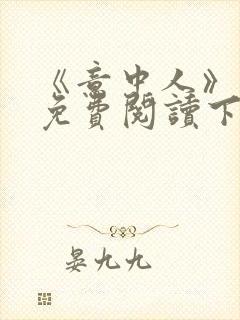 《意中人》
免費閱讀下
晏九九